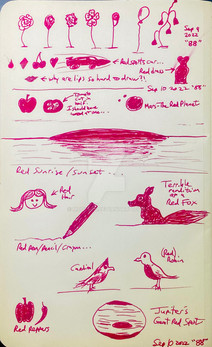 Sep 9
2022
"88"
Red sports car...
Red dress
why are lips so hard to draw?!
Sep 10 2022 "88"
Tomato
cut in
half
I should have
Mars - The Red Planet
Red Sunrise / Sunset....
Red
Hair
Terrible
rendition
of a
Red Fox
Red pen/pencil/crayon...
Cardinal
(Red)
Robin
Red Peppers
Jupiter's
Great Red Spot
Sep 10 2022 "88"